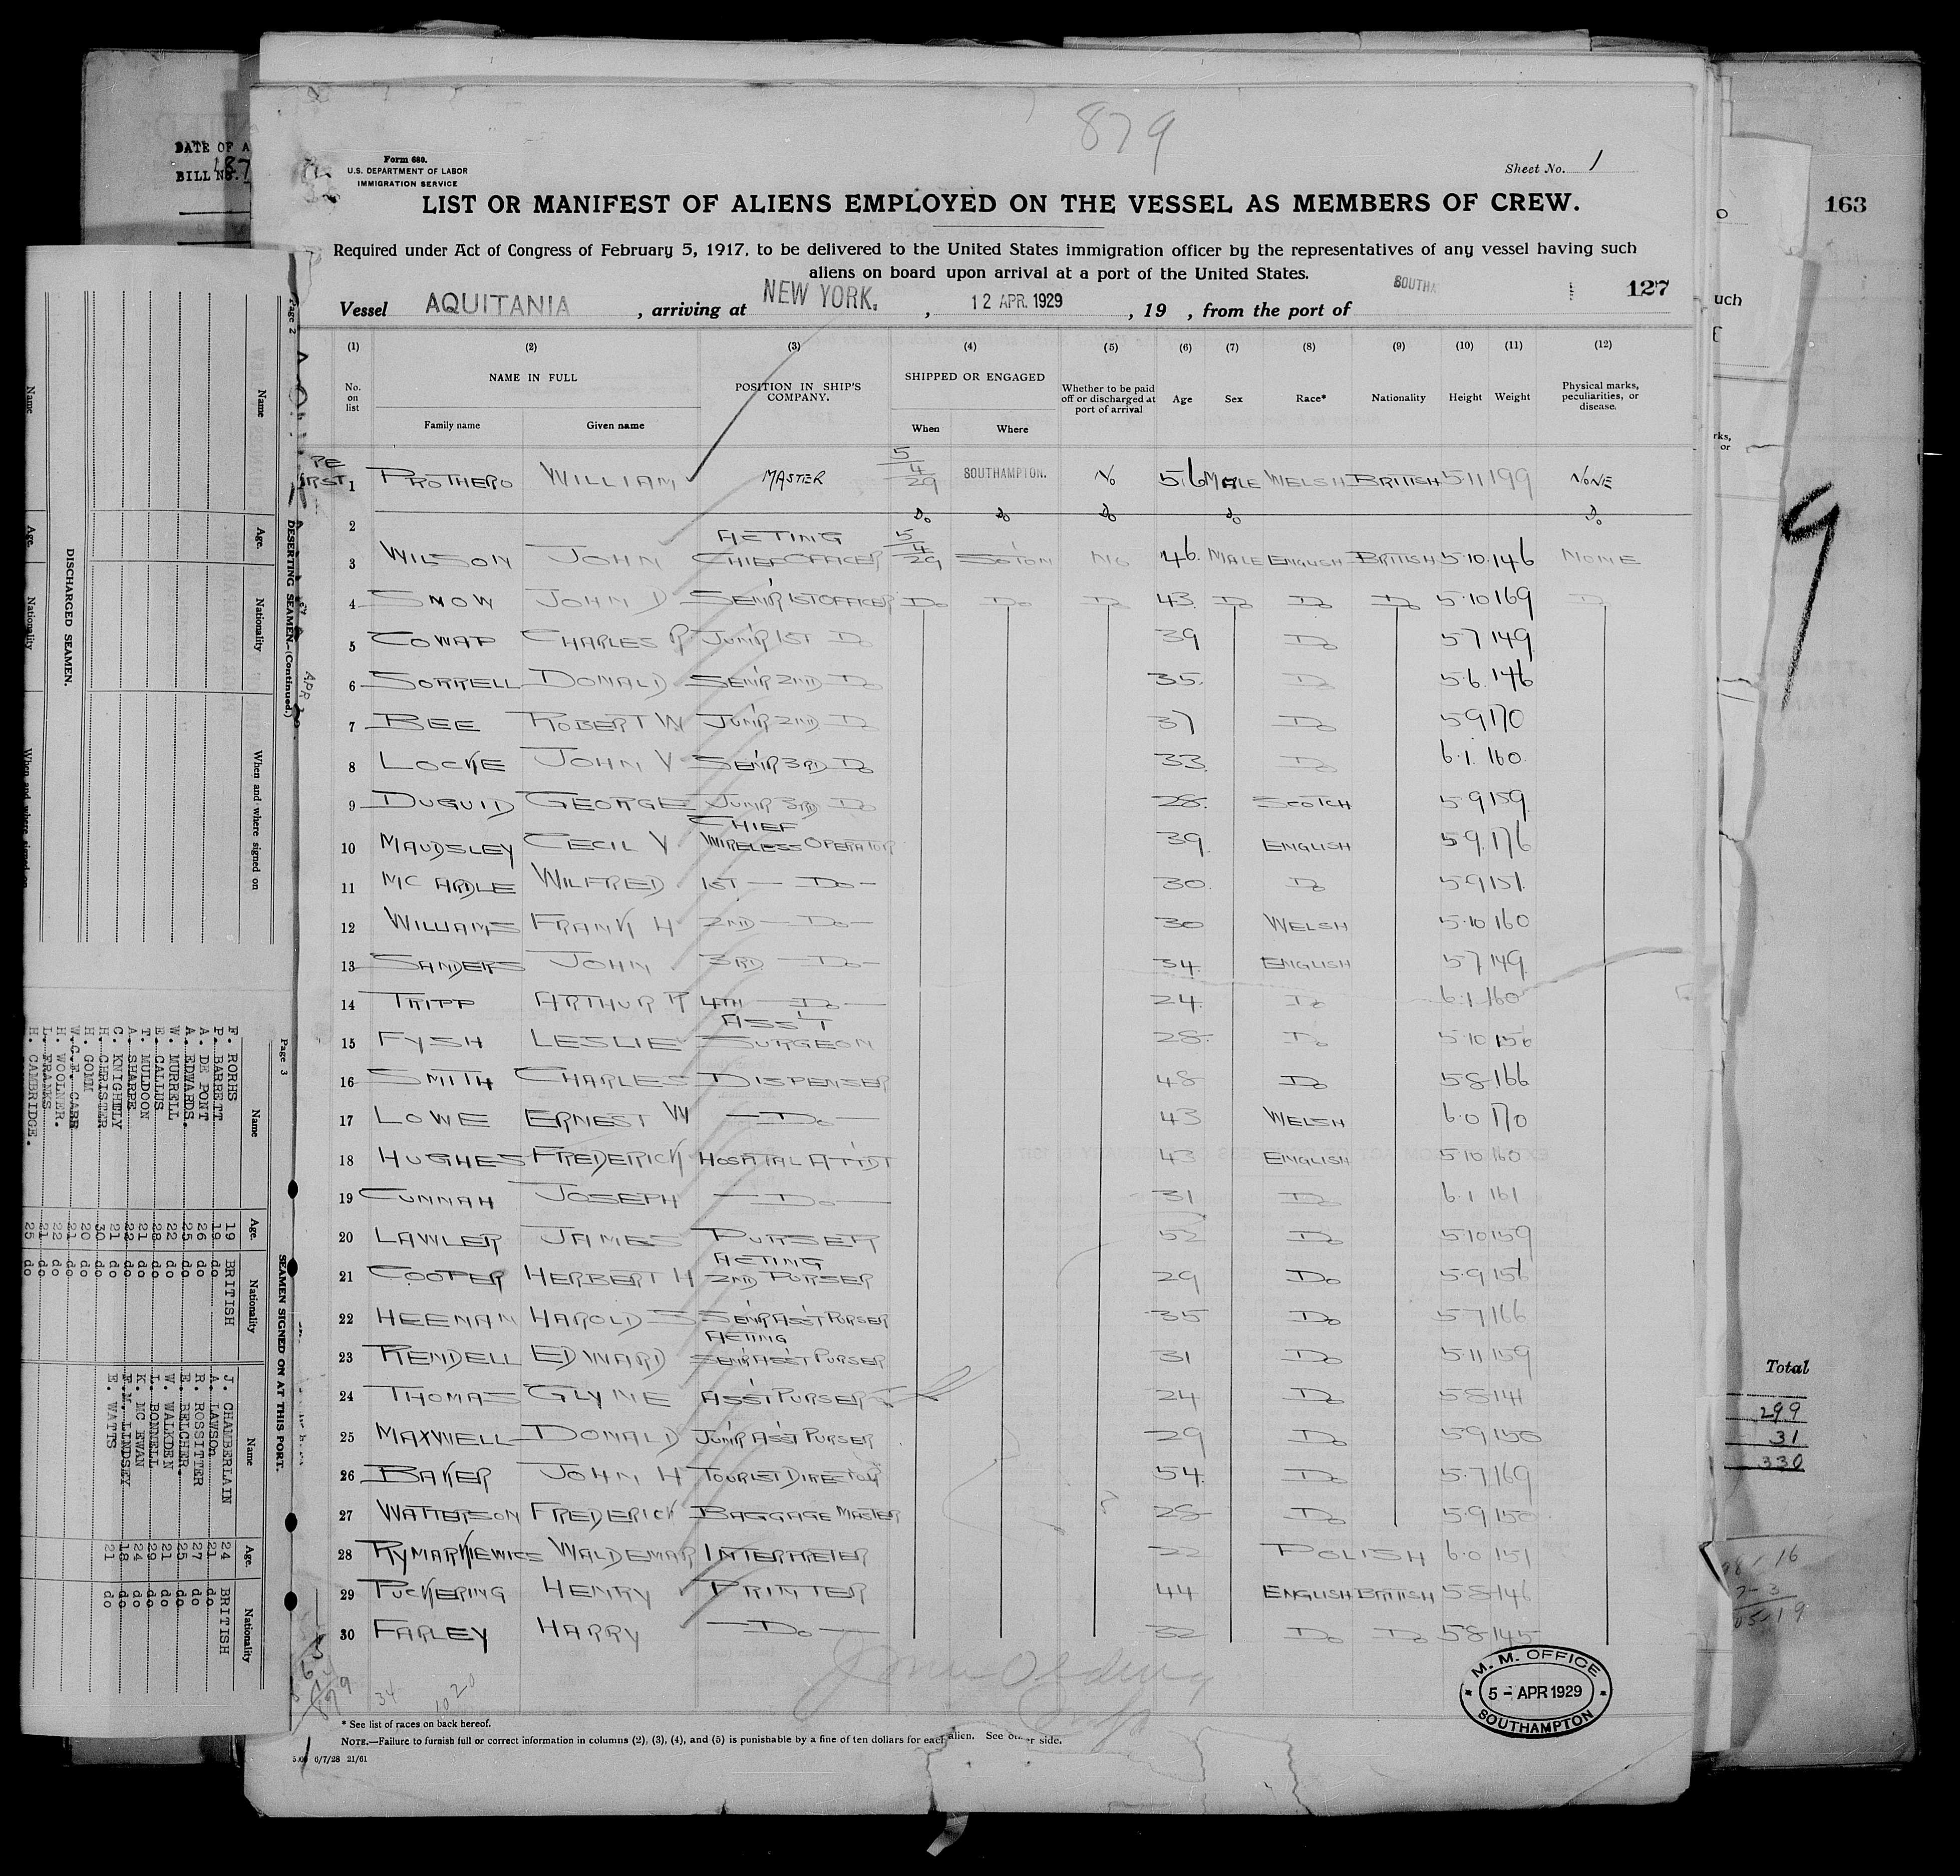 879
Form 680.
U.S. DEPARTMENT OF LABOR
IMMIGRATION SERVICE
Sheet No. 1
LIST OR MANIFEST OF ALIENS EMPLOYED ON THE VESSEL AS MEMBERS OF CREW.
Required under Act of Congress of February 5, 1917, to be delivered to the United States immigration officer by the representatives of any vessel having such
aliens on board upon arrival at a port of the United States.
127
Vessel AQUITANIA, arriving at NEW YORK., 12 APR. 1929, 19 , from the port of
(1) (2) (3) (4) (5) (6) (7) (8) (9) (10) (11) (12)
No. on list NAME IN FULL POSITION IN SHIP'S COMPANY. SHIPPED OR ENGAGED Whether to be paid off or discharged at port of arrival Age Sex Race* Nationality Height Weight Physical marks, peculiarities, or disease.
Family name Given name When Where
1 PROTHERO WILLIAM MASTER 5/4/29 SOUTHAMPTON. No 56 MALE WELSH BRITISH 5·11 199 NONE
2 Do Do Do Do Do
3 WILSON JOHN ACTING CHIEF OFFICER 5/4/29 SO'TON NO 46. MALE ENGLISH BRITISH 5·10 146 NONE
4 SNOW JOHN D SEN'R 1ST OFFICER Do Do Do 43. Do Do Do 5·10 169 Do
5 COWAP CHARLES R JUN'R 1ST Do 39 Do 5·7 149
6 SORRELL DONALD SEN'R 2ND Do 35. Do 5·6 146
7 BEE ROBERT W JUN'R 2ND Do 37 Do 5·9 170
8 LOCKE JOHN V SEN'R 3RD Do 33. Do 6·1 160
9 DUGUID GEORGE JUN'R 3RD Do 28. SCOTCH 5·9 159
10 MAUDSLEY CECIL V CHIEF WIRELESS OPERATOR 39. ENGLISH 5·9 176
11 MC ARDLE WILFRED 1ST — Do — 30. Do 5·9 151
12 WILLIAMS FRANK H 2ND — Do — 30 WELSH 5·10 160
13 SANDERS JOHN 3RD — Do — 34. ENGLISH 5·7 149
14 TRIPP ARTHUR R 4TH — Do — 24. Do 6·1 160
15 FYSH LESLIE ASS'T SURGEON 28. Do 5·10 156
16 SMITH CHARLES DISPENSER 48 Do 5·8 166
17 LOWE ERNEST W — Do — 43 WELSH 6·0 170
18 HUGHES FREDERICK HOSPITAL ATT'DT 43 ENGLISH 5·10 160
19 CUNNAH JOSEPH — Do — 31 Do 6·1 161
20 LAWLER JAMES PURSER 52 Do 5·10 159
21 COOPER HERBERT H ACTING 2ND PURSER 29 Do 5·9 156
22 HEENAN HAROLD S SEN'R ASS'T PURSER 35 Do 5·7 166
23 RENDELL EDWARD ACTING SEN'R ASS'T PURSER 31 Do 5·11 159
24 THOMAS GLYNE ASS'T PURSER 24 Do 5·8 141
25 MAXWELL DONALD JUN'R ASS'T PURSER 29 Do 5·9 150
26 BAKER JOHN H TOURIST DIRECTOR 54. Do 5·7 169
27 WATTERSON FREDERICK BAGGAGE MASTER 28 Do 5·9 150
28 RYMARKIEWICS WALDEMAR INTERPRETER 22 POLISH 6·0 151
29 PUCKERING HENRY PRINTER 44 ENGLISH BRITISH 5·8 146
30 FARLEY HARRY — Do — 32 Do Do 5·8 145
34 1020
* See list of races on back hereof.
NOTE.—Failure to furnish full or correct information in columns (2), (3), (4), and (5) is punishable by a fine of ten dollars for each alien. See other side.
6/7/28 21/61
M. M. OFFICE
5 - APR 1929
SOUTHAMPTON
DATE OF A
BILL NO. 187
Page 2
DESERTING SEAMEN.—(Continued.)
Name Age. Nationality When and where signed on
DISCHARGED SEAMEN.
Name Age. Nationality When and where signed on
Page 3
SEAMEN SIGNED ON AT THIS PORT.
Name Age. Nationality Name Age. Nationality
F. RORHS 19 BRITISH J. CHAMBERLAIN 24 BRITISH
P. BARRETT 19 do A. LAWSOn 21 do
A. DE PONT 26 do R. ROSSITTER 27 do
A. EDWARDS. 25 do E. BELCHER. 25 do
W. MURRELL 22 do W. WALKDEN 21 do
E. CALLUS 28 do I. BONNELL 29 do
T. MULDOON 21 do K. MC EWAN 24 do
A. SHARPE 22 do F.M. LINDSEY 18 do
C. KNIGHELY 21 do E. WATTS 21 do
H. CHRISTER 30 do
H. GOMM 20 do
W.G.F. CARE 21 do
H. WOOLNER. 22 do
L. FRANKS 21 do
H. CAMBRIDGE. 25 do
163
uch
rks,
or
9
Total
299
31
330